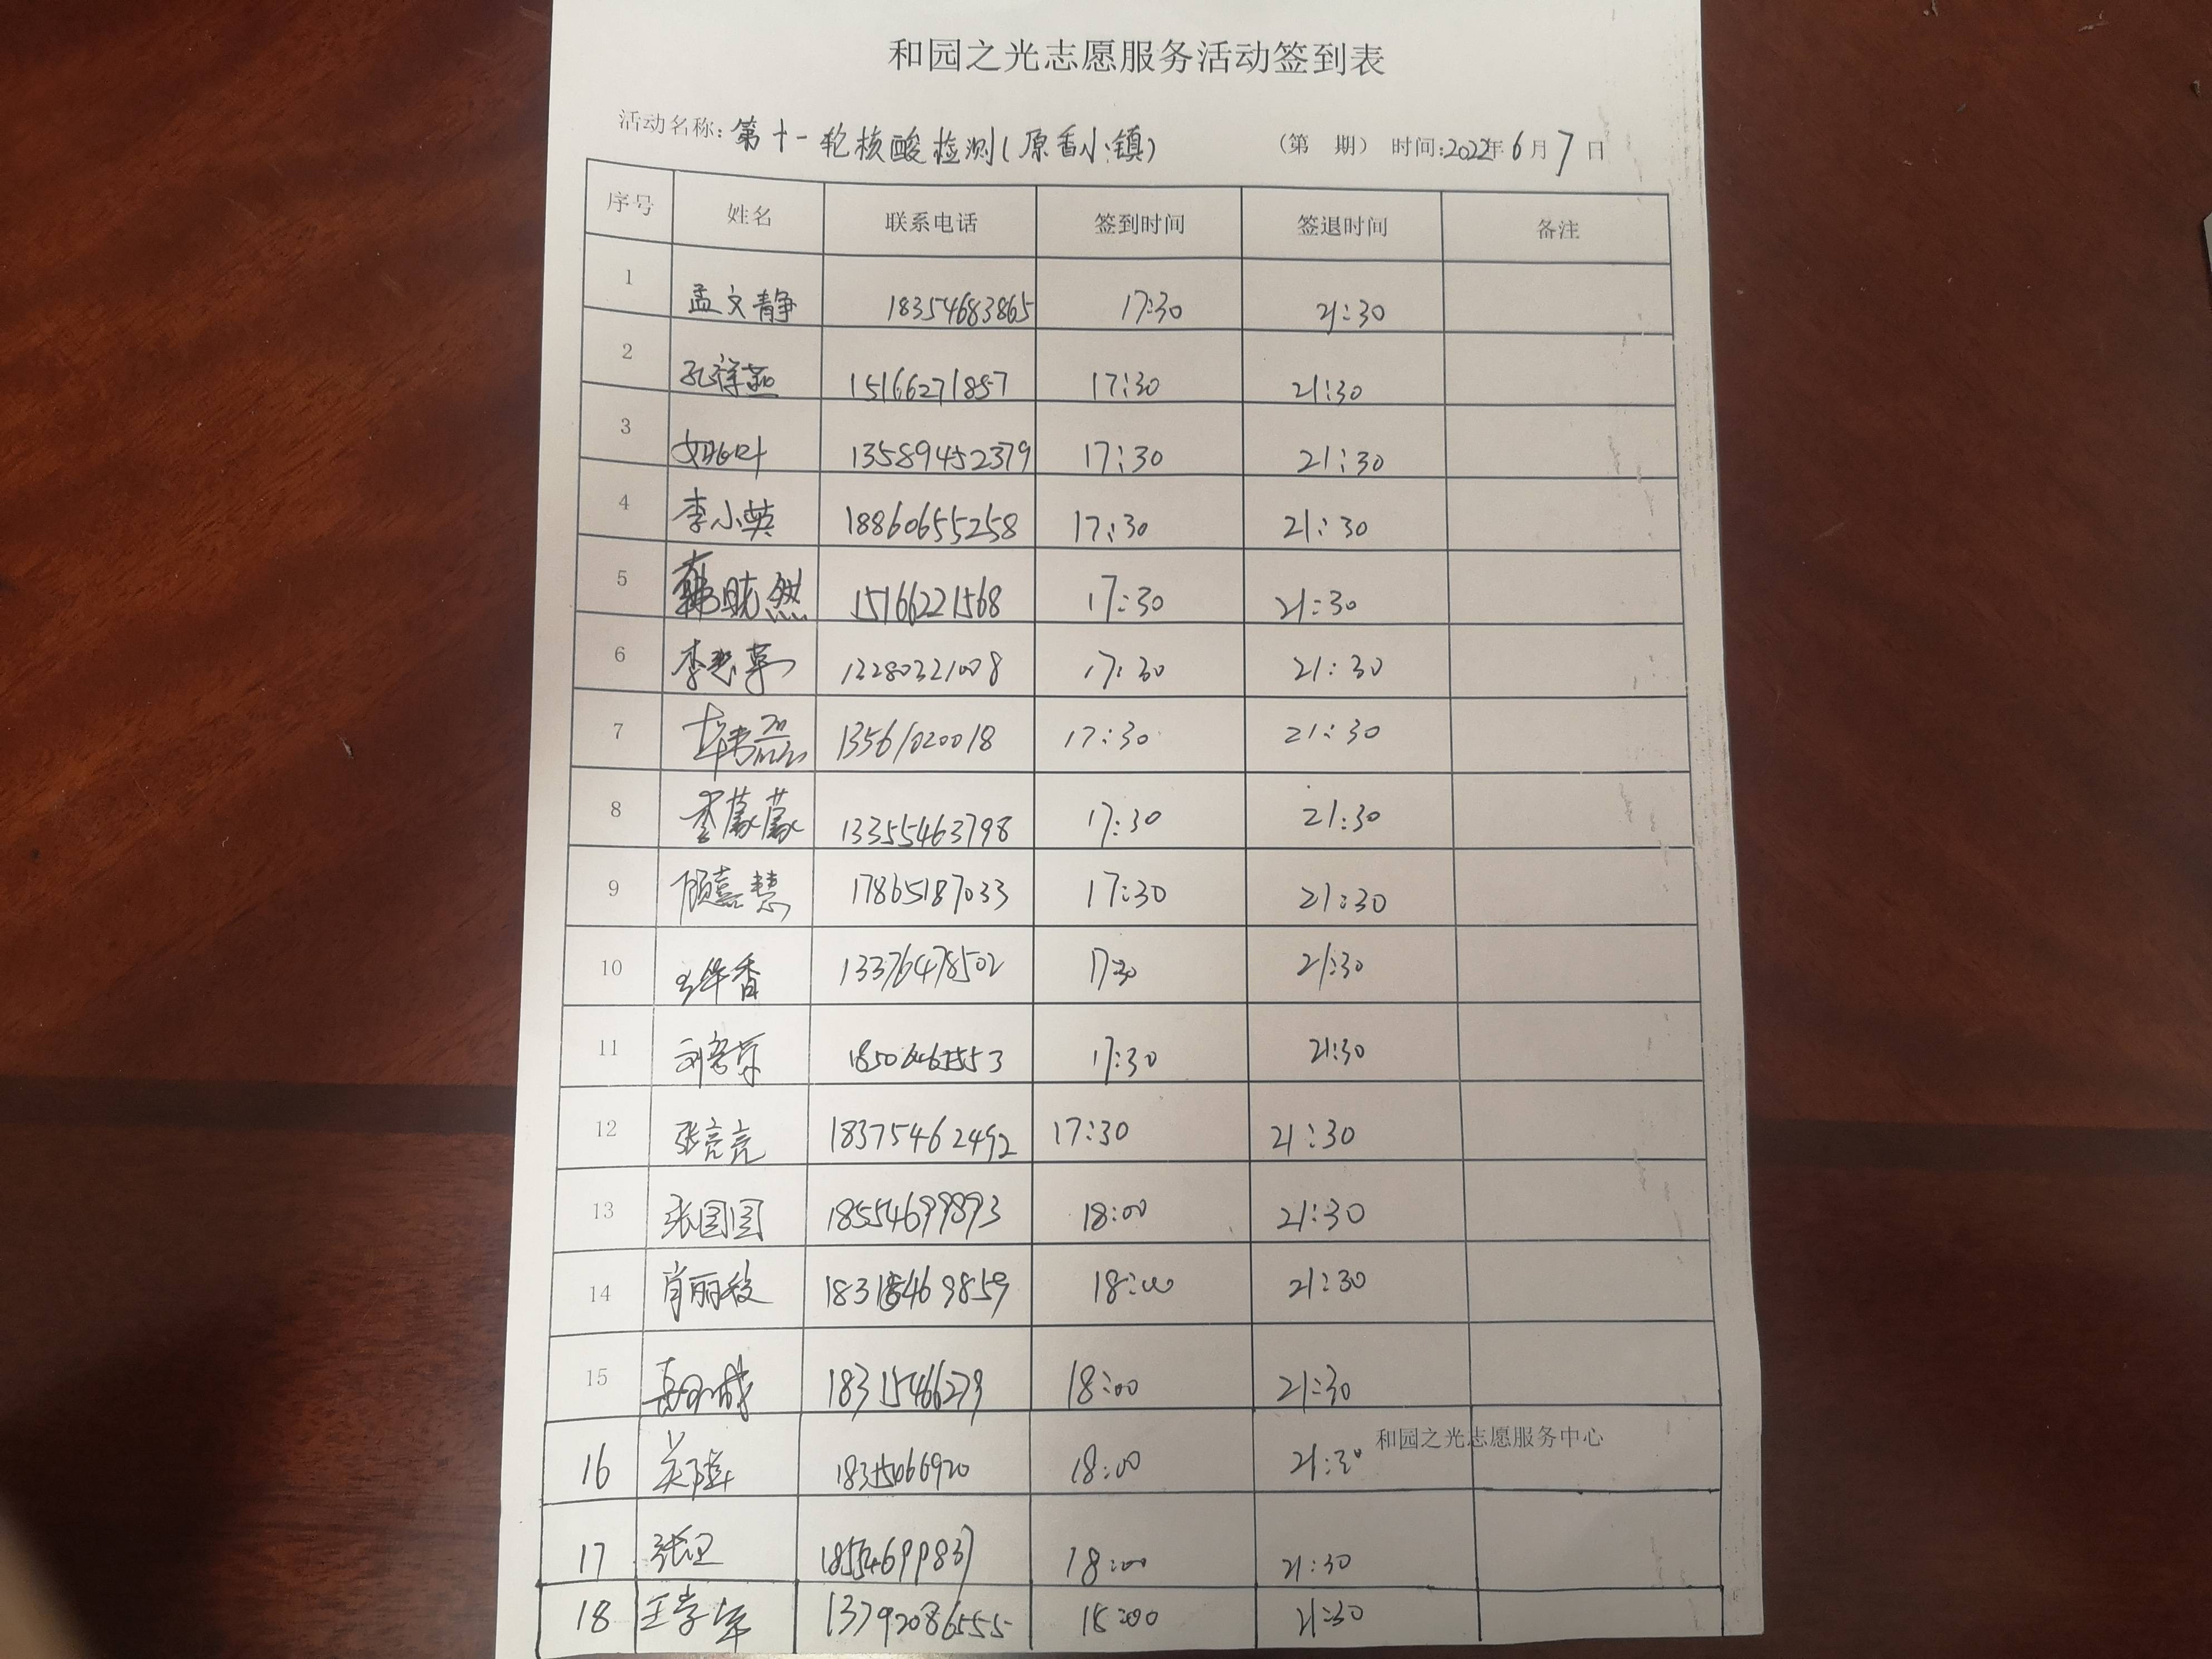 和园之光志愿服务活动签到表
活动名称:第十一轮核酸检测(原香小镇) (第 期) 时间:2022年6月7日
序号 姓名 联系电话 签到时间 签退时间 备注
1 孟文静 18354683865 17:30 21:30
2 孔祥燕 15166271857 17:30 21:30
3 13589452379 17:30 21:30
4 李小英 18860655258 17:30 21:30
5 韩晓然 15166221568 17:30 21:30
6 13280321008 17:30 21:30
7 13561020018 17:30 21:30
8 李蒙蒙 13355463798 17:30 21:30
9 顾嘉慧 17865187033 17:30 21:30
10 13376478502 17:30 21:30
11 17:30 21:30
12 张亮亮 18375462492 17:30 21:30
13 张国国 18554699893 18:00 21:30
14 肖丽 18:00 21:30
15 18315466279 18:00 21:30
16 18:00 21:30
和园之光志愿服务中心
17 张卫 18554699837 18:00 21:30
18 王学军 13792086555 18:00 21:30